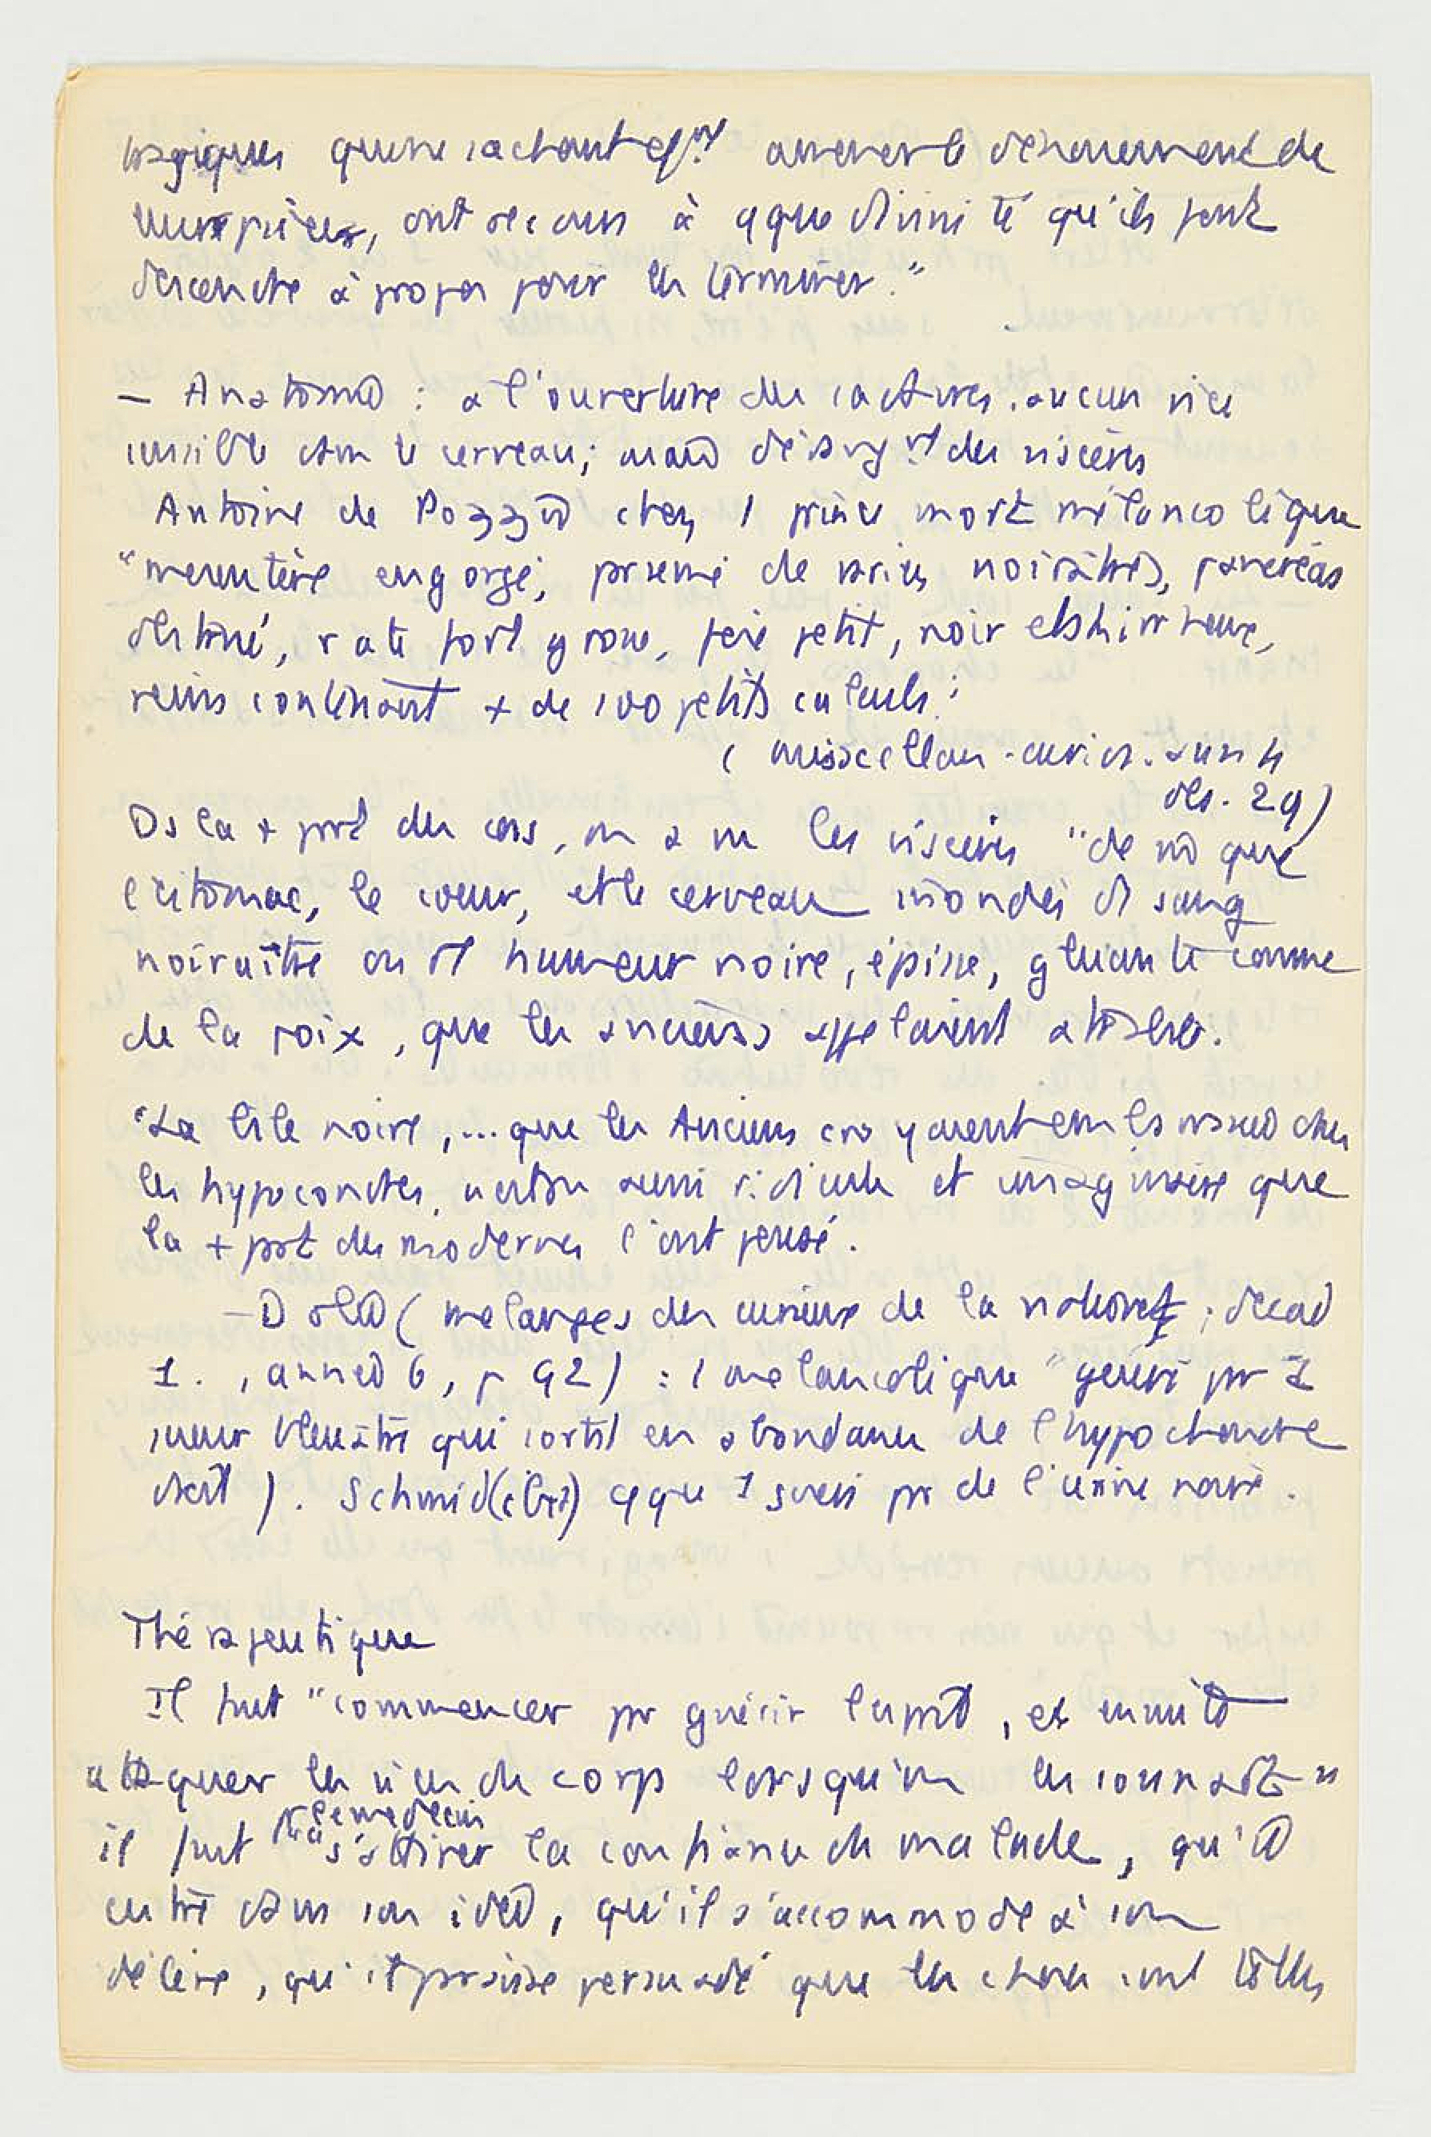 tragiques qui ne sachant cpdt amener le dénouement de
leurs pièces, ont recours à qque divinité qu'ils font
descendre à propos pour les terminer."
— Anatomie : à l'ouverture des cadavres, aucun vice
sensible dans le cerveau; mais des viscères
Antoine de Pozzis chez 1 prince mort mélancolique
"mésentère engorgé, parsemé de varices noirâtres, pancréas
obstrué, rate fort grosse, foie petit, noir et skirrheux,
reins contenant + de 100 petits calculs."
( miscellan. curios. ann 4
obs. 29)
Ds la + part des cas, on a vu les viscères "de mê que
l'estomac, le coeur, et le cerveau inondés de sang
noirâtre ou d'1 humeur noire, épisse, gluante comme
de la poix, que les anciens appelaient atrabile.
"La bile noire, ... que les Anciens croyaient embarrassée chez
les hypocondres, n'est pas aussi ridicule et imaginaire que
la + part des modernes l'ont pensé.
— Dolée ( mélanges des curieux de la nature ; décad
1. , année 6, p 92) : 1 mélancolique "guéri par 1
sueur bleuâtre qui sortit en abondance de l'hypochondre
droit ). Schmid (ibid) qque 1 guéri par de l'urine noire.
Thérapeutique
Il faut "commencer par guérir l'esprit, et ensuite
attaquer les vices du corps lorsqu'on les connaît"
le médecin
il faut s'attirer la confiance du malade, qu'il
entre dans son idée, qu'il s'accommode à son
délire, qu'il paraisse persuadé que les choses sont telles